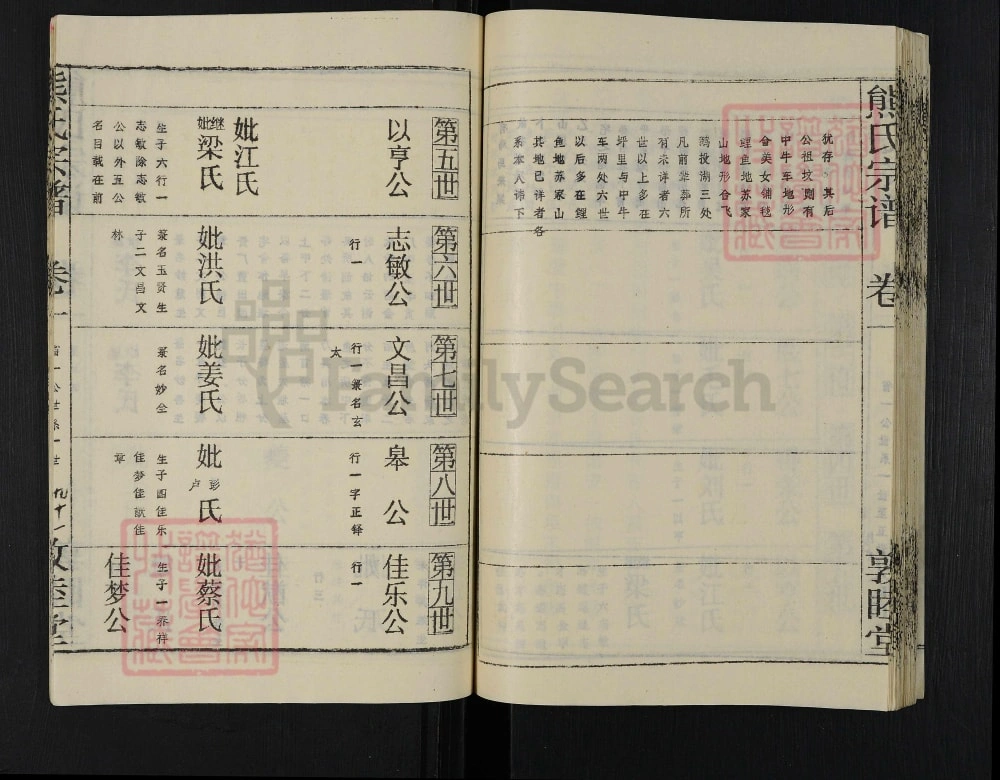 熊氏宗谱
卷一
敦睦堂
犹存、其后
公祖坟则有
甲牛车地形
合美女铺毯
鲤鱼地苏家
山地形合飞
鹅投湖三处
凡前辈葬所
有未详者六
世以上多在
坪里与中牛
车两处六世
以后多在鲤
鱼地苏家山
其地已详者各
系本人讳下
第五世
以亨公
妣江氏
继妣梁氏
生子六行一
志敏除志敏
公以外五公
名目载在前
第六世
志敏公
行一
妣洪氏
篆名玉贤生
子二文昌文
林
第七世
文昌公
行一篆名玄
太
妣姜氏
篆名妙全
第八世
皋公
行一字正铎
妣彭卢氏
生子四佳乐
佳梦佳猷佳
章
第九世
佳乐公
行一
妣蔡氏
生子一添祥
佳梦公
熊氏宗谱
卷一
九十一
敦睦堂
FamilySearch